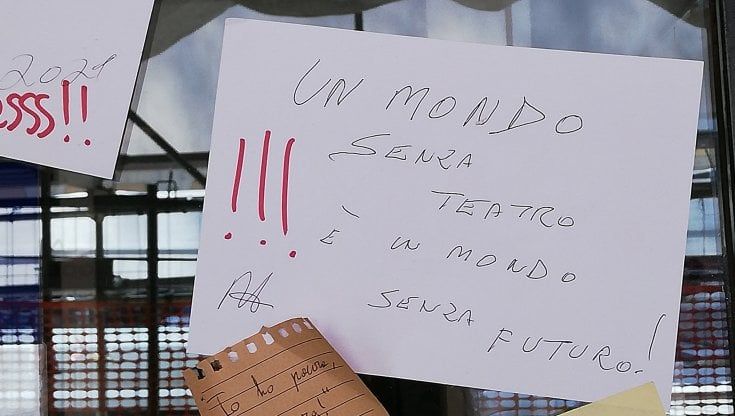 2021
esss!!
UN MONDO
SENZA
TEATRO
!!!
È UN MONDO
SENZA FUTURO!
Io ho paura,